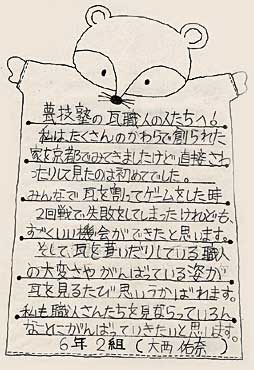 甍技塾の瓦職人の人たちへ!
私は、たくさんのかわらで創られた
家を京都でみてきましたけど直接さわ
ったりして見たのは初めてでした。
みんなで瓦を割ってゲームをした時
2回戦で失敗をしてしまったけれども、
すごくいい機会ができたと思います。
そして、瓦を葺いだりしている職人
の大変さやがんばっている姿が
瓦を見るたび思いうかばれます。
私も職人さんたちを見ならっていろん
なことにがんばっていきたいと思います。
6年2組(大西佑奈)